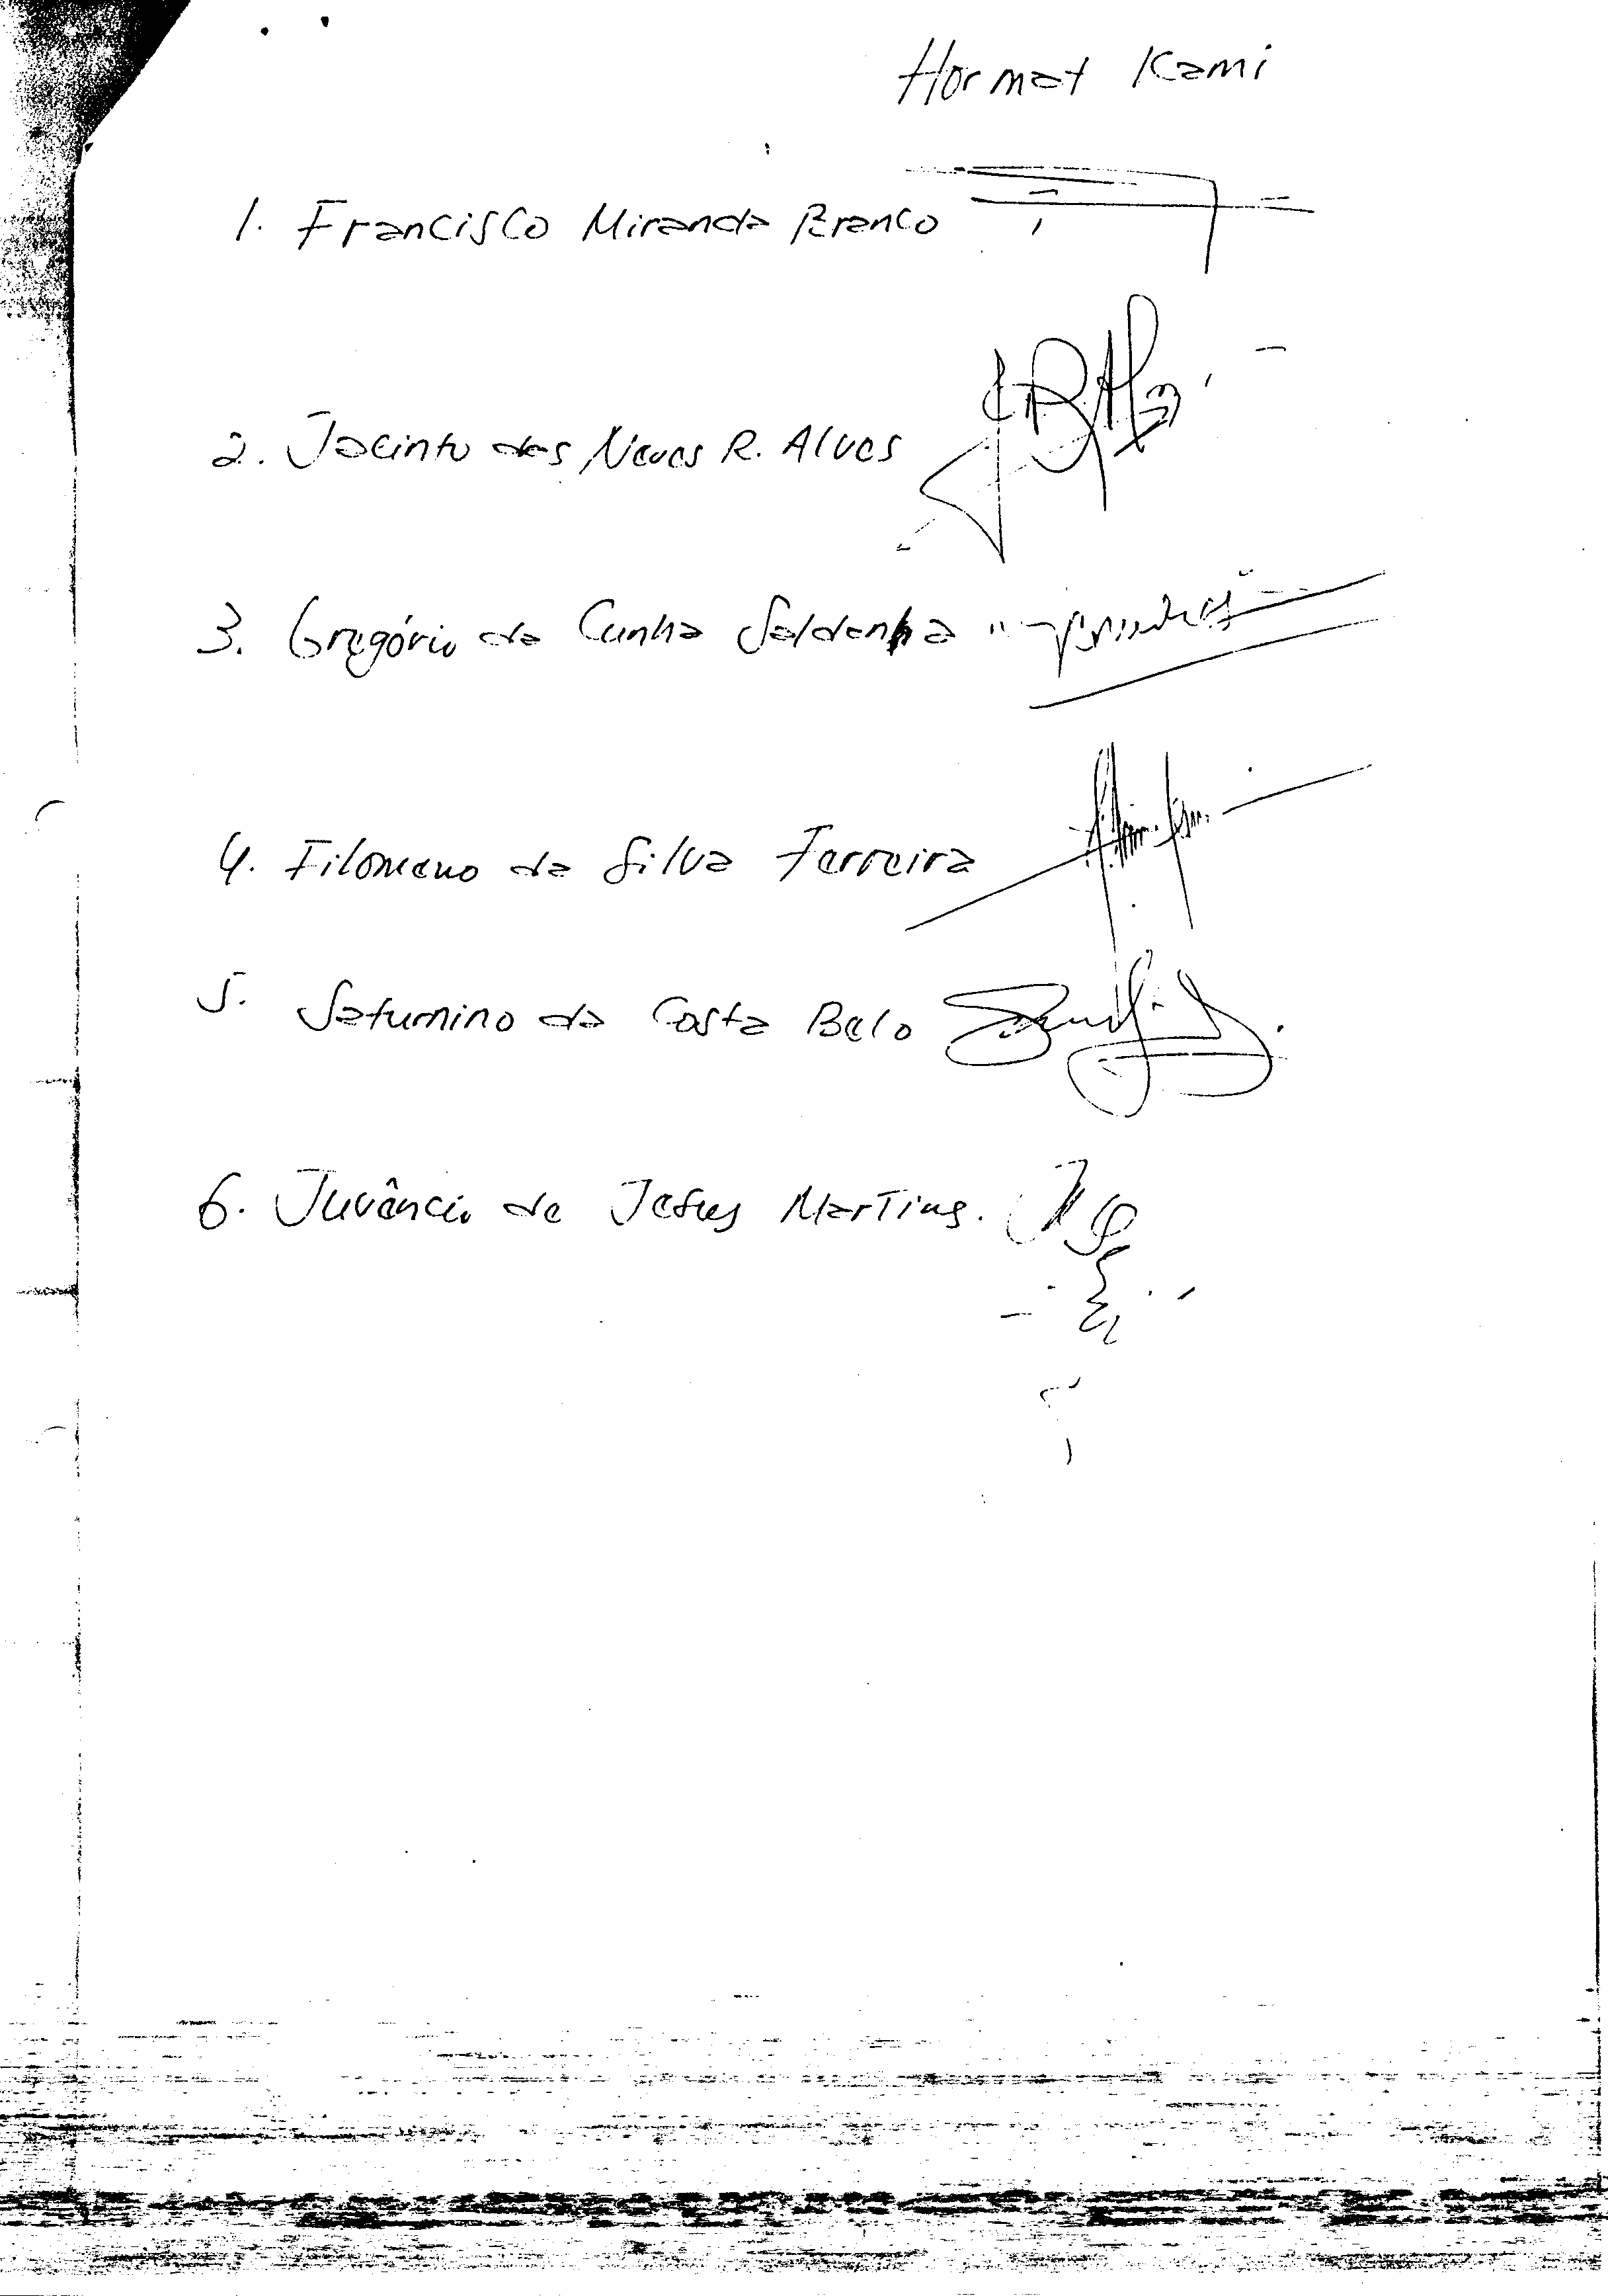 Hormat Kami
1. Francisco Miranda Branco
2. Jacinto das Neves R. Alves
3. Gregório da Cunha Saldanha
4. Filomeno da Silva Ferreira
5. Saturnino da Costa Belo
6. Juvâncio de Jesus Martins.